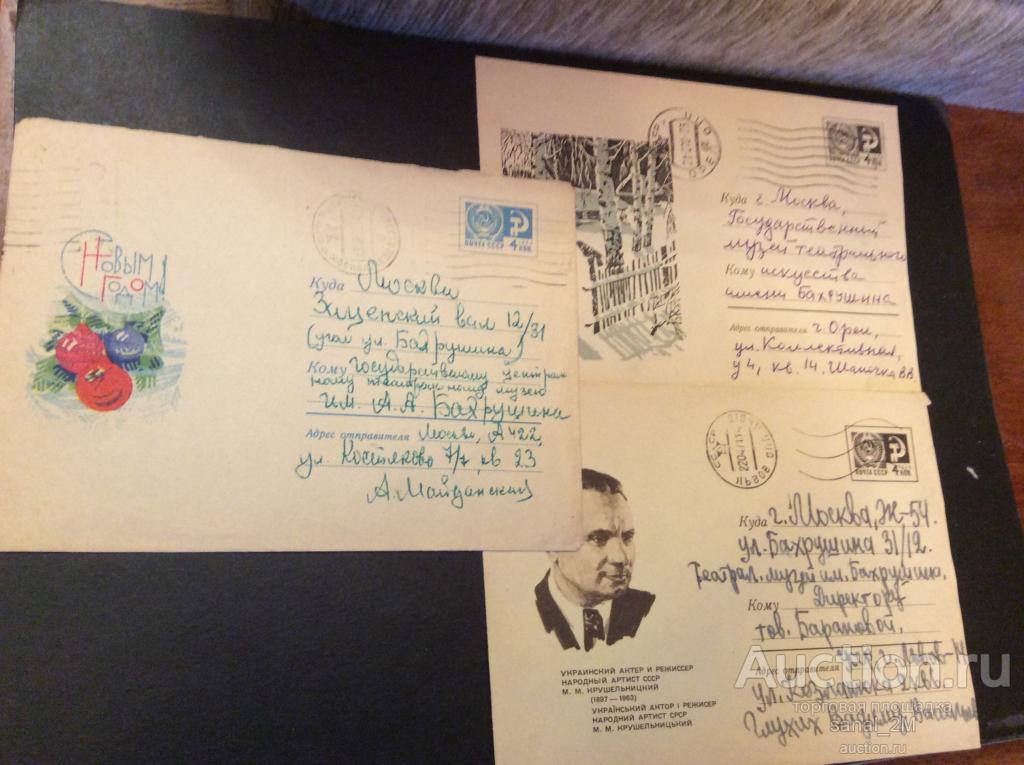 С
Новым
Годом
ПОЧТА СССР 4 КОП.
Куда Москва
Зацепский вал 12/31
(угол ул. Бахрушина)
Кому Государственному централь
ному театральному музею
им. А. А. Бахрушина
Адрес отправителя Москва, А 422,
ул. Костякова 7/7, кв 23
А. Майданский
ПОЧТА СССР 4 КОП
Куда г. Москва,
Государственный
музей театрального
Кому искусства
имени Бахрушина
Адрес отправителя г. Орел,
ул. Коллективная,
кв. 14, В.В.
СССР ЛЬВОВ
ПОЧТА СССР 4 КОП
Куда г. Москва, Ж-54.
ул. Бахрушина 31/12.
Театрал. музей им. Бахрушина.
Кому Директору
тов. Барановой.
Адрес отправителя
ул.
Глухих Вадим
УКРАИНСКИЙ АКТЕР И РЕЖИССЕР
НАРОДНЫЙ АРТИСТ СССР
М. М. КРУШЕЛЬНИЦКИЙ
(1897 — 1963)
УКРАЇНСЬКИЙ АКТОР І РЕЖИСЕР
НАРОДНИЙ АРТИСТ СРСР
М. М. КРУШЕЛЬНИЦЬКИЙ
Auction.ru
торговая площадка
sanal_2M
auction.ru